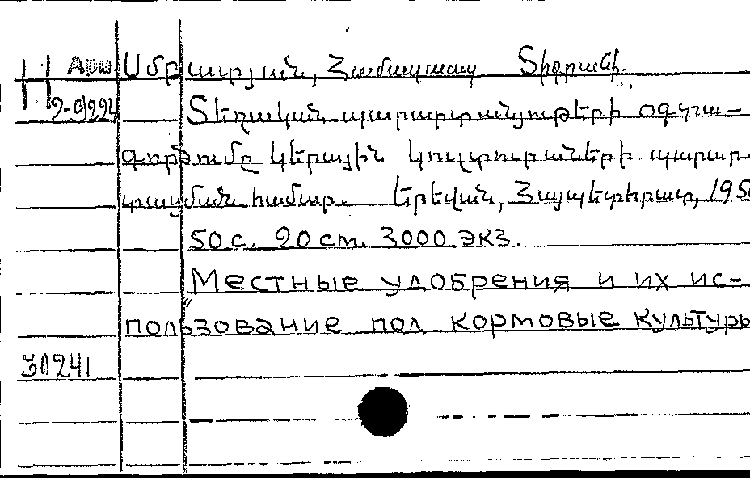 Ամբարյան, Համազասպ Տիգրանի.
Տեղական պարարտանյութերի օգտա-
գործումը կերային կուլտուրաների պարար-
տացման համար. Երևան, Հայպետհրատ, 195
50 с. 20 cm. 3000 экз.
Местные удобрения и их ис-
пользование под кормовые культуры
30241